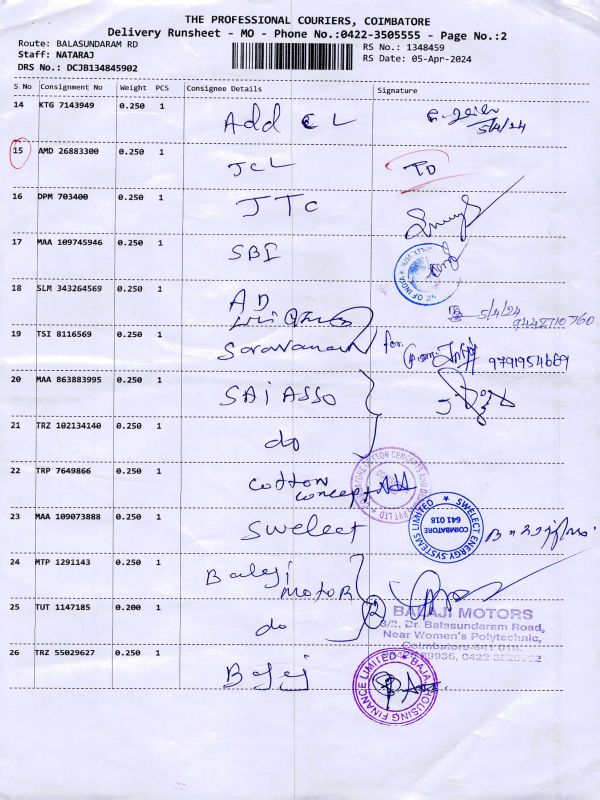 THE PROFESSIONAL COURIERS, COIMBATORE
Delivery Runsheet - MO - Phone No.:0422-3505555 - Page No.:2
Route: BALASUNDARAM RD
Staff: NATARAJ
DRS No.: DCJB134845902
RS No.: 1348459
RS Date: 05-Apr-2024
S No Consignment No Weight PCS Consignee Details Signature
14 KTG 7143949 0.250 1 Add CL 5/4/24
15 AMD 26883300 0.250 1 JCL TD
16 DPM 703400 0.250 1 JTC
17 MAA 109745946 0.250 1 SBI
OF INDIA
18 SLM 343264569 0.250 1 AD 5/4/24
9442710360
19 TSI 8116569 0.250 1 Saravanan for. 9791954669
20 MAA 863883995 0.250 1 SAI ASSO
21 TRZ 102134140 0.250 1 do
22 TRP 7649866 0.250 1 cotton concept
23 MAA 109073888 0.250 1 swelect
SWELECT ENERGY SYSTEMS LIMITED
COIMBATORE
641 018
24 MTP 1291143 0.250 1 Balaji motor
25 TUT 1147185 0.200 1 do 2
BALAJI MOTORS
3/2, Dr. Balasundaram Road,
Near Women's Polytechnic,
Coimbatore-641 018.
26 TRZ 55029627 0.250 1 Bajaj
BAJAJ HOUSING FINANCE LIMITED